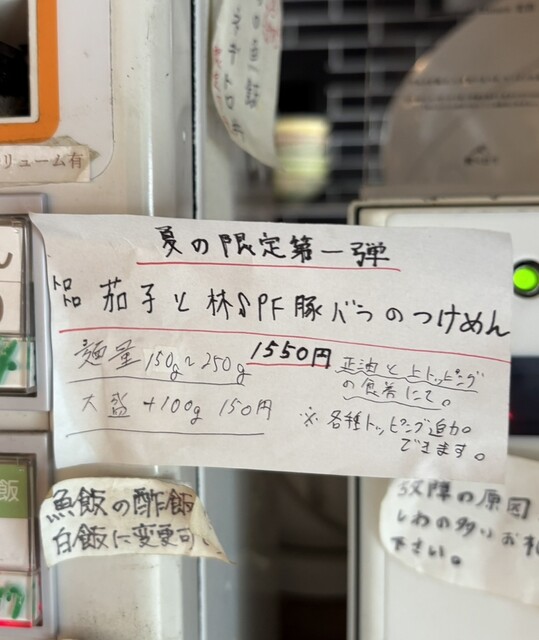 リューム有
夏の限定第一弾
茄子と林SPF豚バラのつけめん
1550円
麺量150g~250g
大盛 +100g 150円
正油と上トッピング
の食券にて。
※各種トッピング追加
できます。
飯
魚飯の酢飯
白飯に変更可
故障の原因
しわの多いお札
下さい。